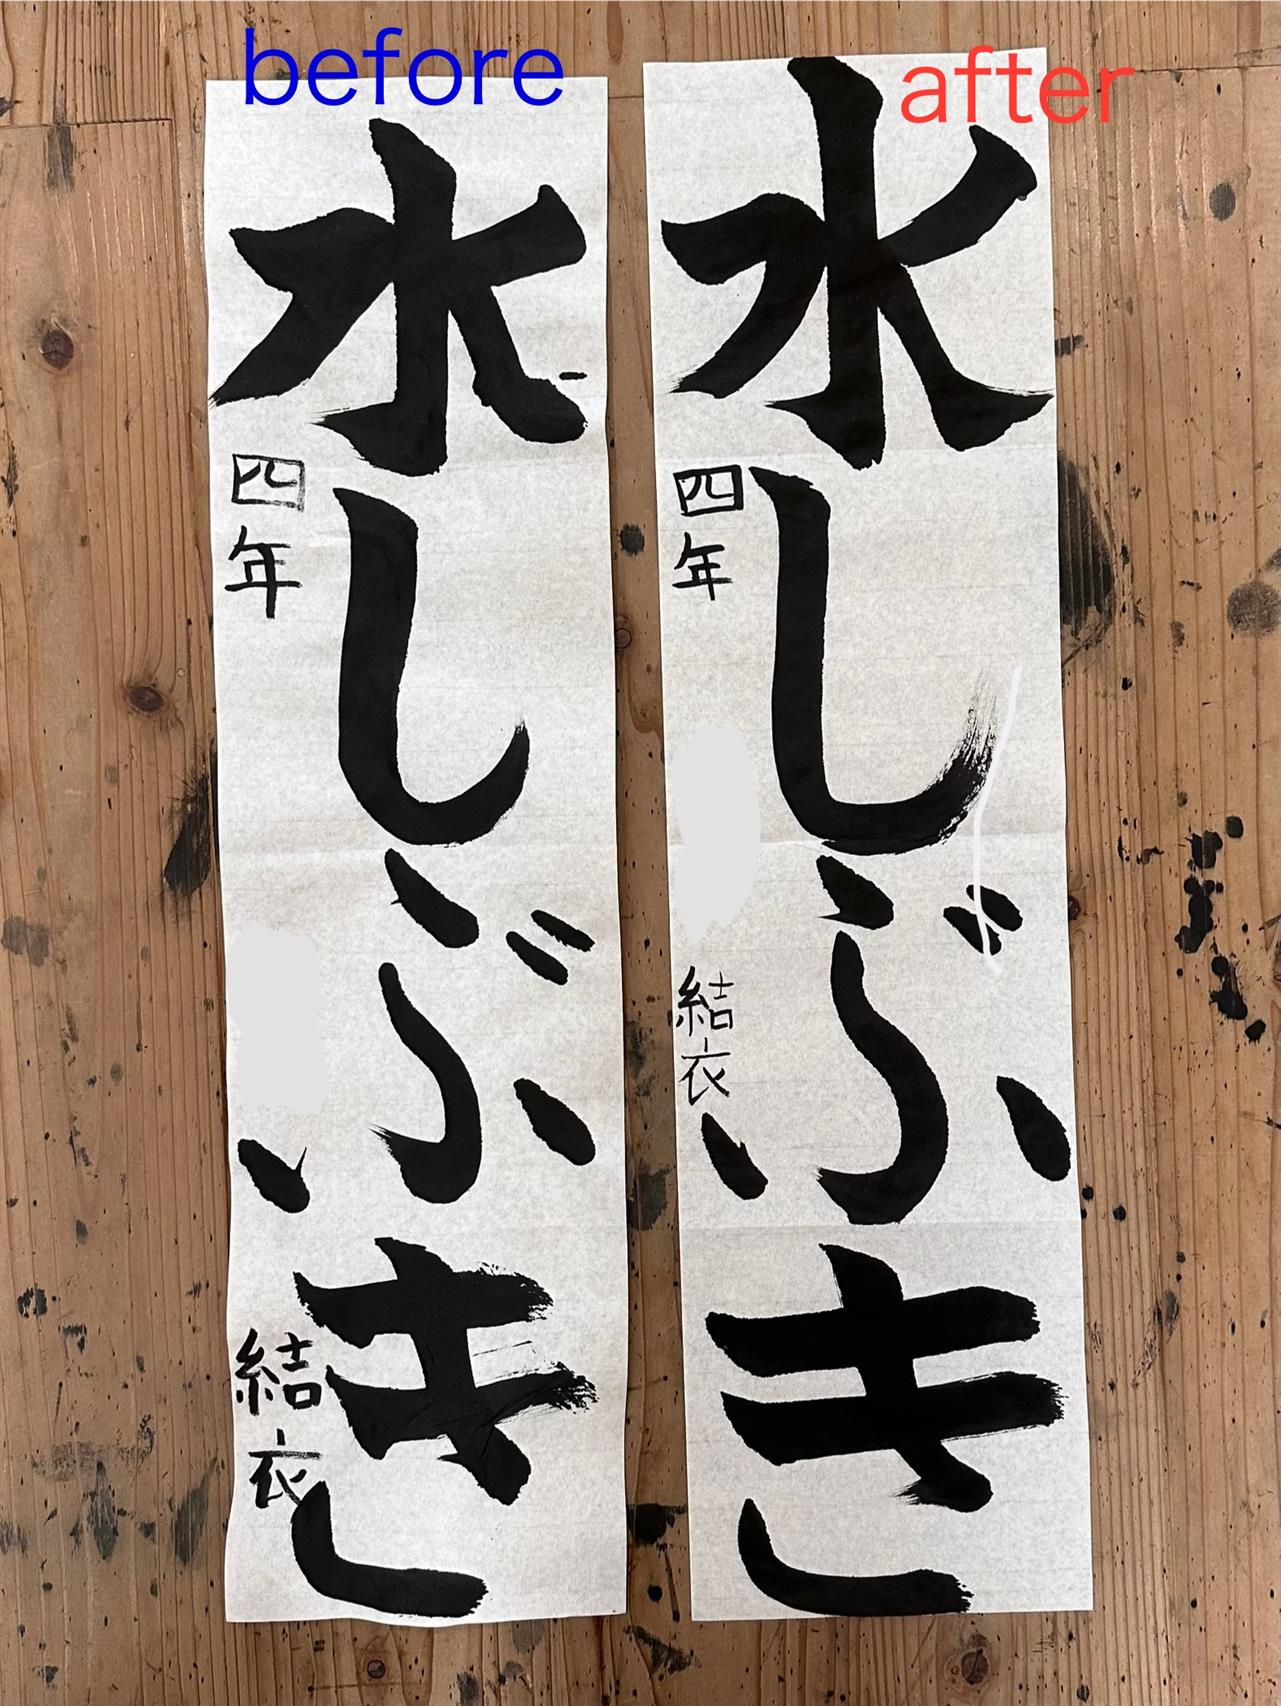 before
after
水しぶき
四年
結衣
水しぶき
四年
結衣